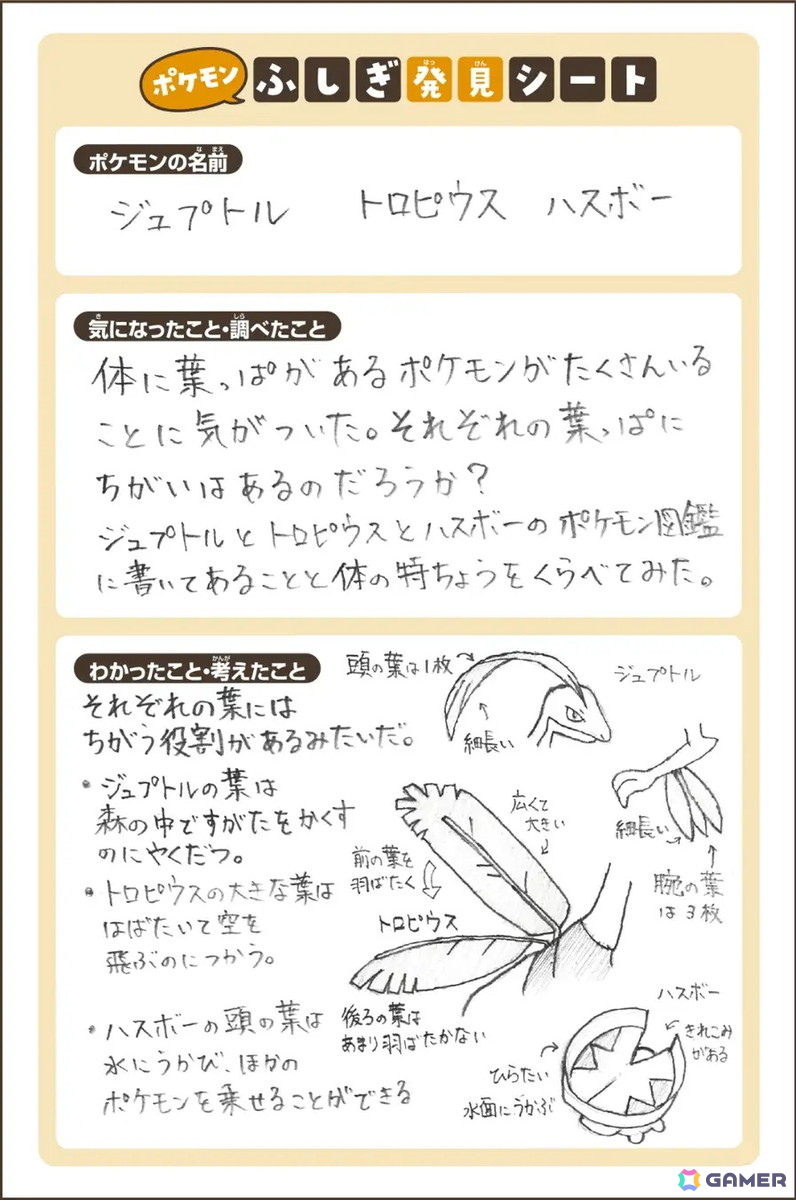 ポケモン ふしぎ発見シート
ポケモンの名前
ジュプトル トロピウス ハスボー
気になったこと・調べたこと
体に葉っぱがあるポケモンがたくさんいる
ことに気がついた。それぞれの葉っぱに
ちがいはあるのだろうか?
ジュプトルとトロピウスとハスボーのポケモン図鑑
に書いてあることと体の特ちょうをくらべてみた。
わかったこと・考えたこと
それぞれの葉には
ちがう役割があるみたいだ。
・ジュプトルの葉は
森の中ですがたをかくす
のにやくだつ。
・トロピウスの大きな葉は
はばたいて空を
飛ぶのにつかう。
・ハスボーの頭の葉は
水にうかび、ほかの
ポケモンを乗せることができる
頭の葉は1枚
ジュプトル
細長い
細長い
腕の葉
は3枚
広くて
大きい
前の葉を
羽ばたく
トロピウス
後ろの葉は
あまり羽ばたかない
ハスボー
きれこみ
がある
ひらたい
水面にうかぶ
GAMER